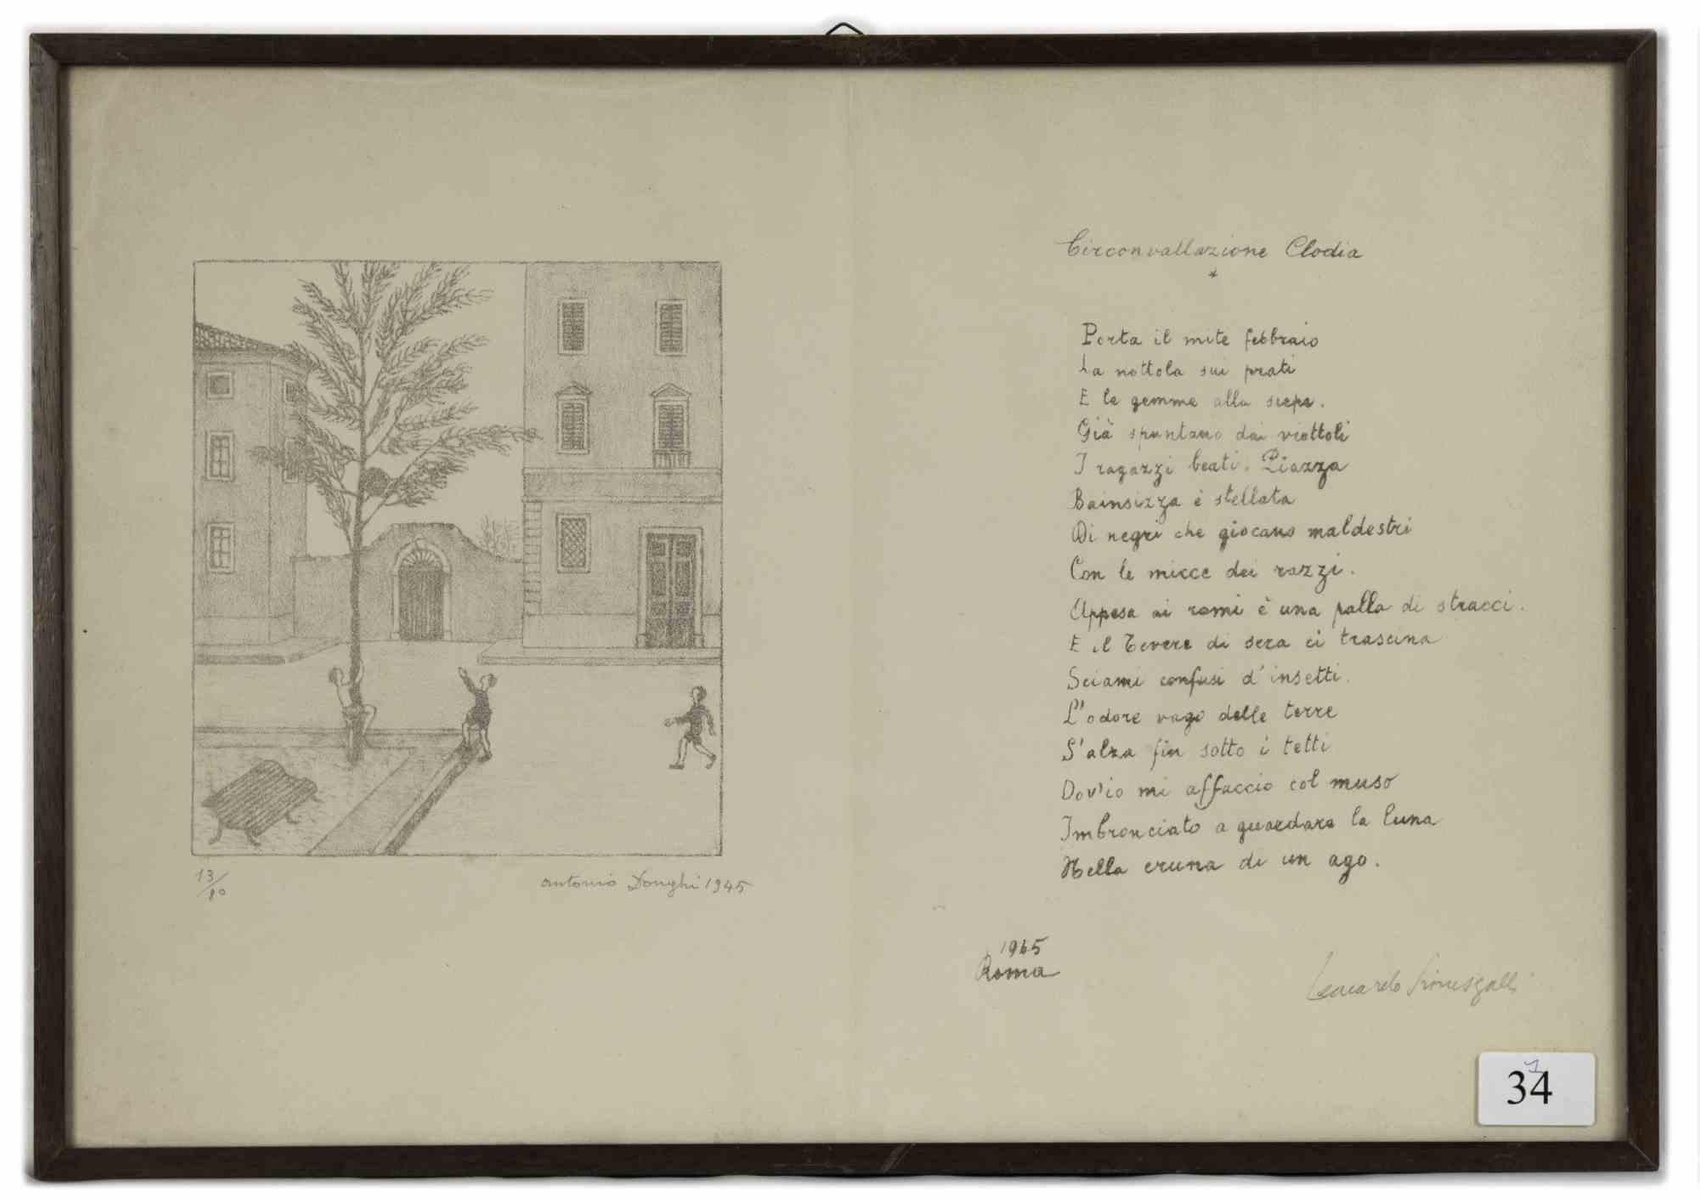 13/80
Antonio Donghi 1945
Circonvallazione Clodia
*
Porta il mite febbraio
La nottola sui prati
E le gemme alla siepe.
Già spuntano dai viottoli
I ragazzi beati. Piazza
Bainsizza è stellata
Di negri che giocano maldestri
Con le micce dei razzi.
Appesa ai rami è una palla di stracci.
E il Tevere di sera ci trascina
Sciami confusi d'insetti.
L'odore vago delle terre
S'alza fin sotto i tetti
Dov'io mi affaccio col muso
Imbronciato a guardare la luna
Nella cruna di un ago.
1945
Roma
Leonardo Sinisgalli
34